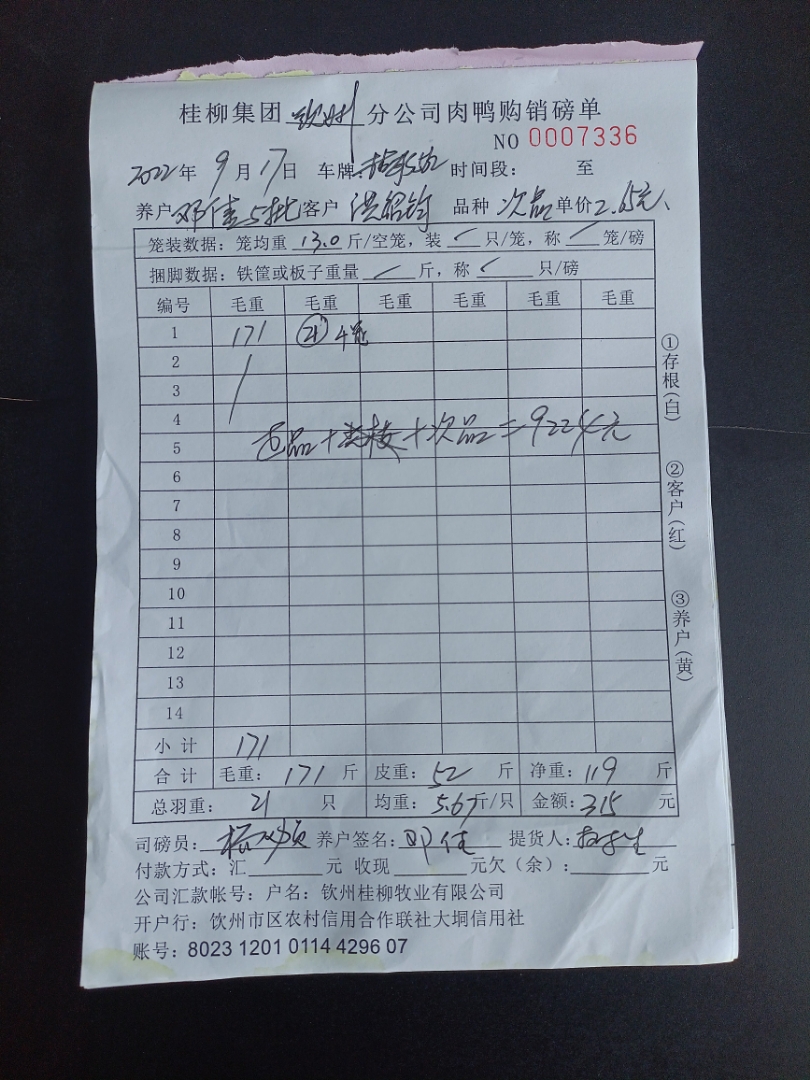 桂柳集团 钦州 分公司肉鸭购销磅单
NO 0007336
2022年 9月 17日 车牌 时间段: 至
养户 邓佳5批 客户 洪绍钧 品种 次品 单价 2.65元
笼装数据: 笼均重 13.0 斤/空笼, 装 / 只/笼, 称 / 笼/磅
捆脚数据: 铁筐或板子重量 / 斤, 称 / 只/磅
编号 毛重 毛重 毛重 毛重 毛重 毛重
1 171 21 4笼
2
3
4
5 品+ +次品=9224元
6
7
8
9
10
11
12
13
14
小计 171
合计 毛重: 171 斤 皮重: 52 斤 净重: 119 斤
总羽重: 21 只 均重: 5.67斤/只 金额: 315 元
司磅员: 养户签名: 邓佳 提货人:
付款方式: 汇 元 收现 元欠(余): 元
公司汇款帐号: 户名: 钦州桂柳牧业有限公司
开户行: 钦州市区农村信用合作联社大垌信用社
账号: 8023 1201 0114 4296 07
①存根(白)
②客户(红)
③养户(黄)